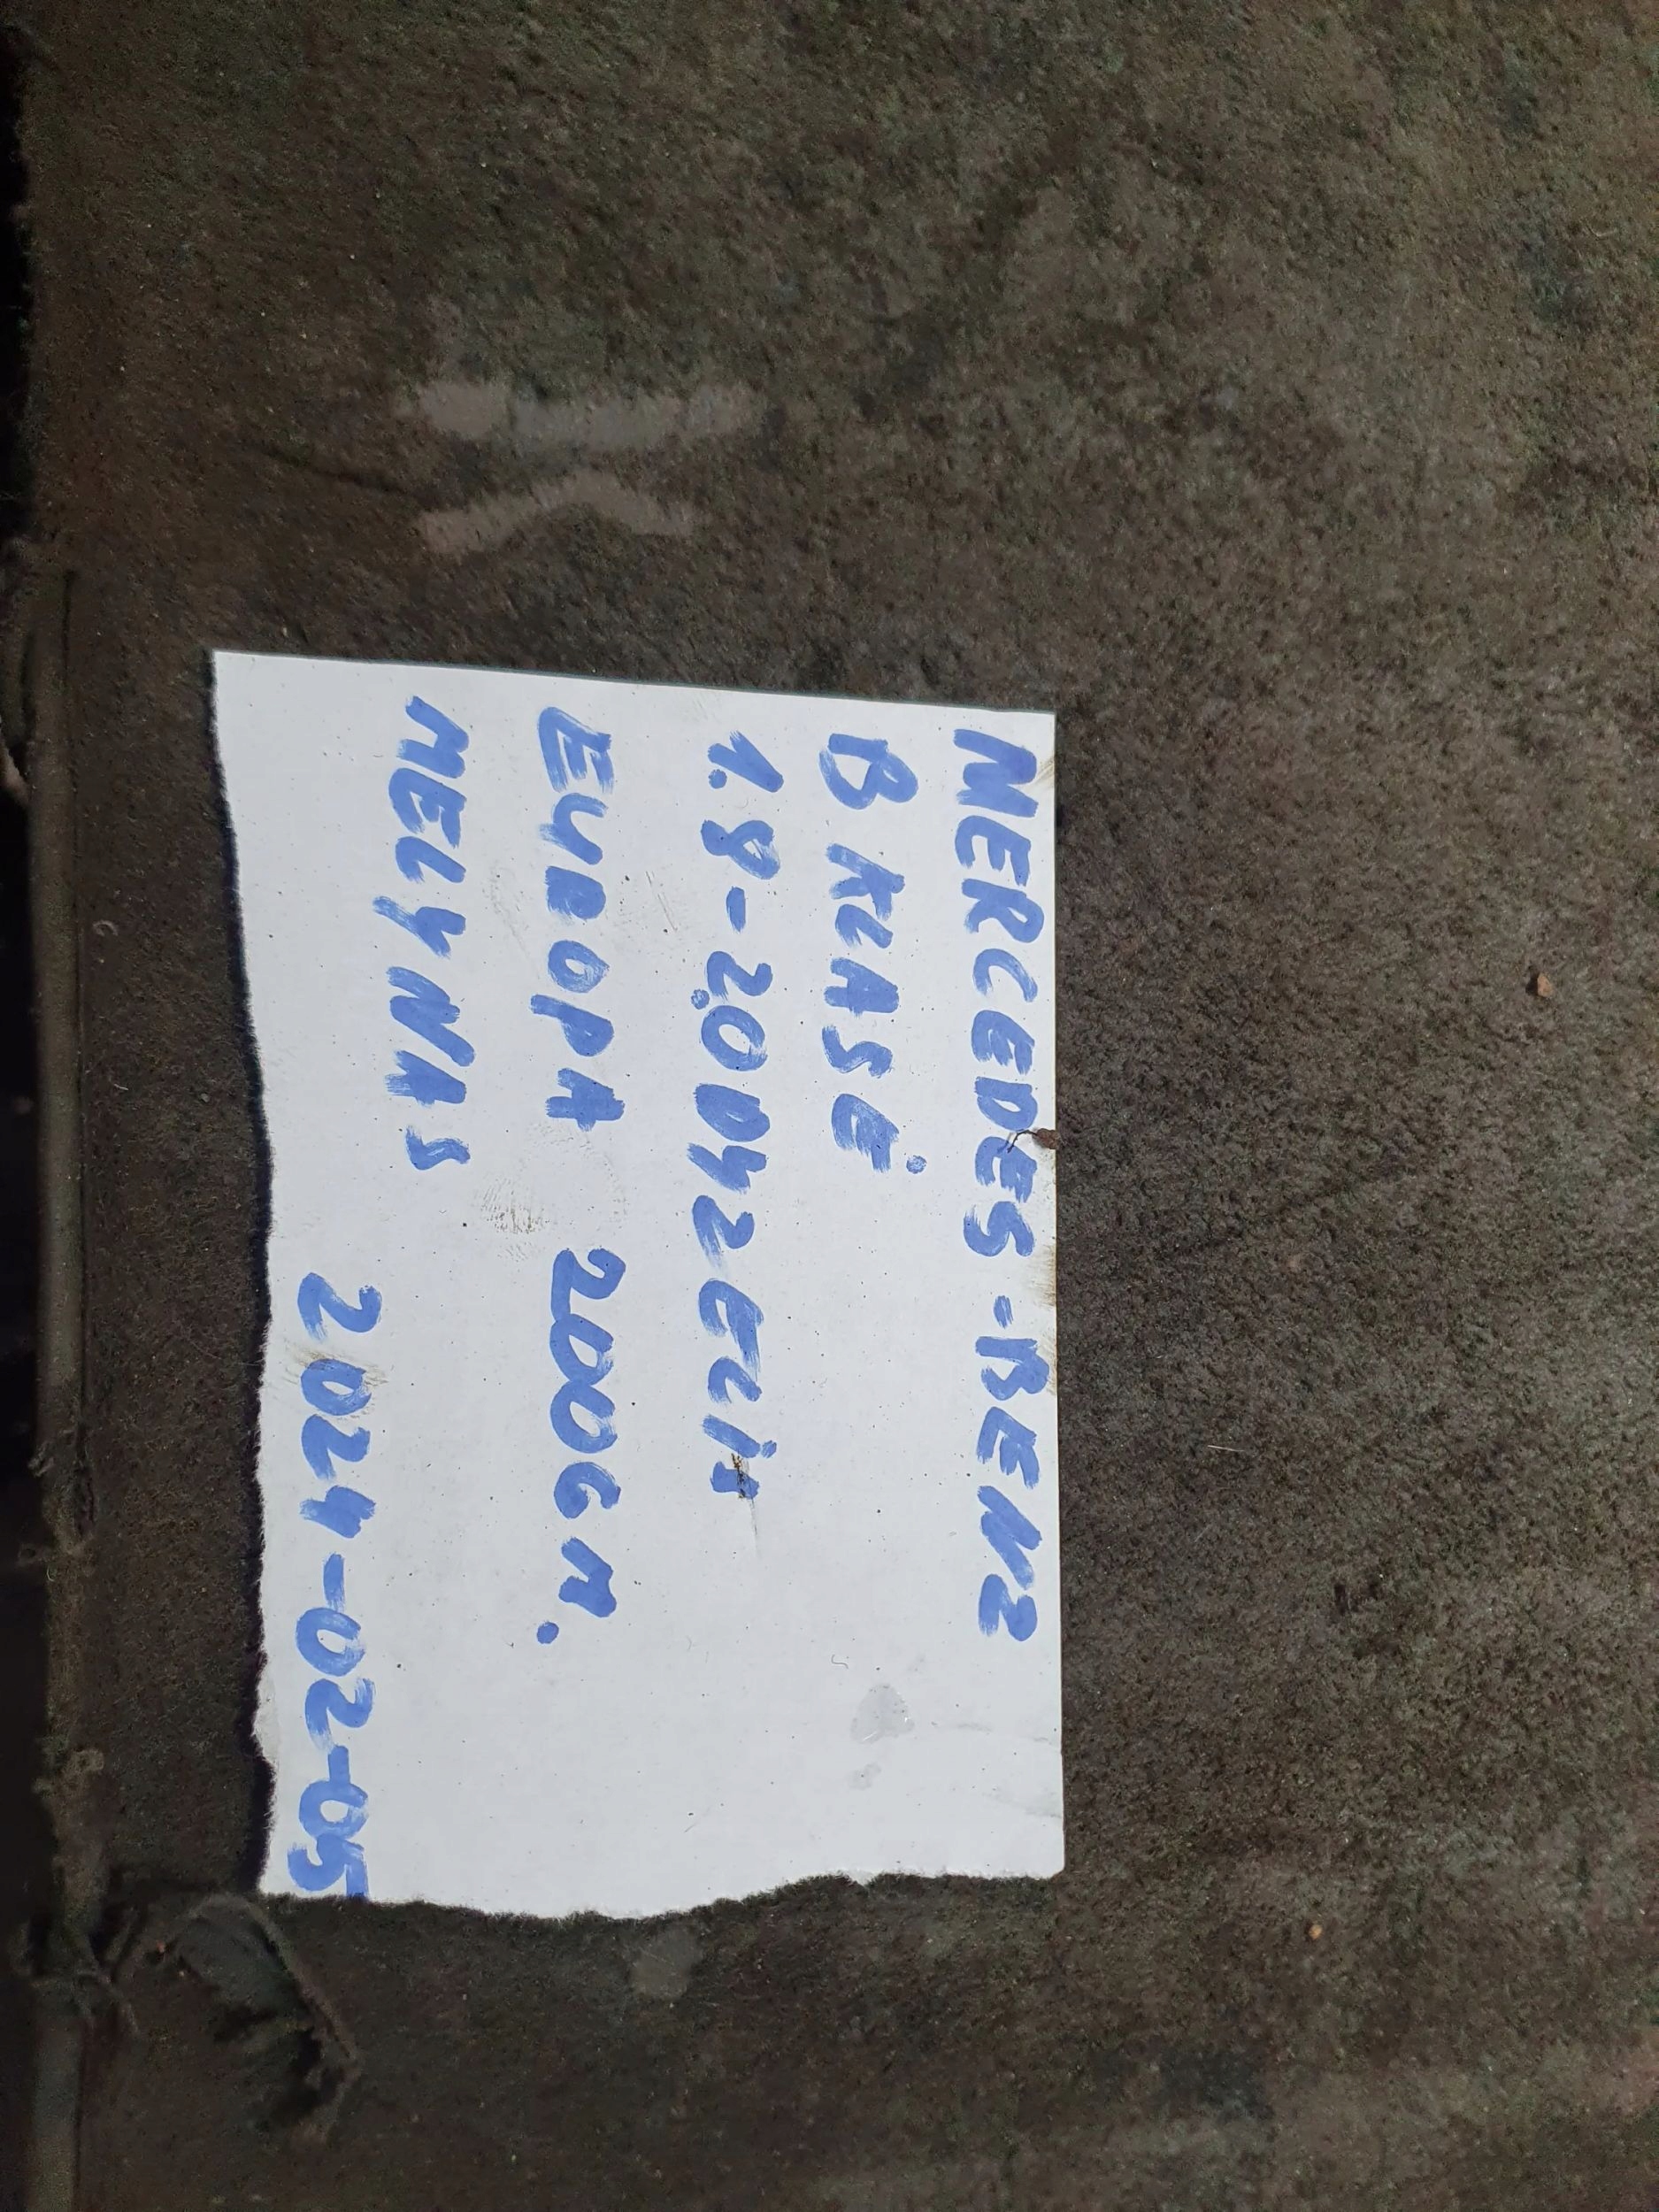 MERCEDES-BENZ
B KLASĖ
1.8-2.0 D42ECIA
EUROPA 2006 M.
MELYNAS
2024-02-05